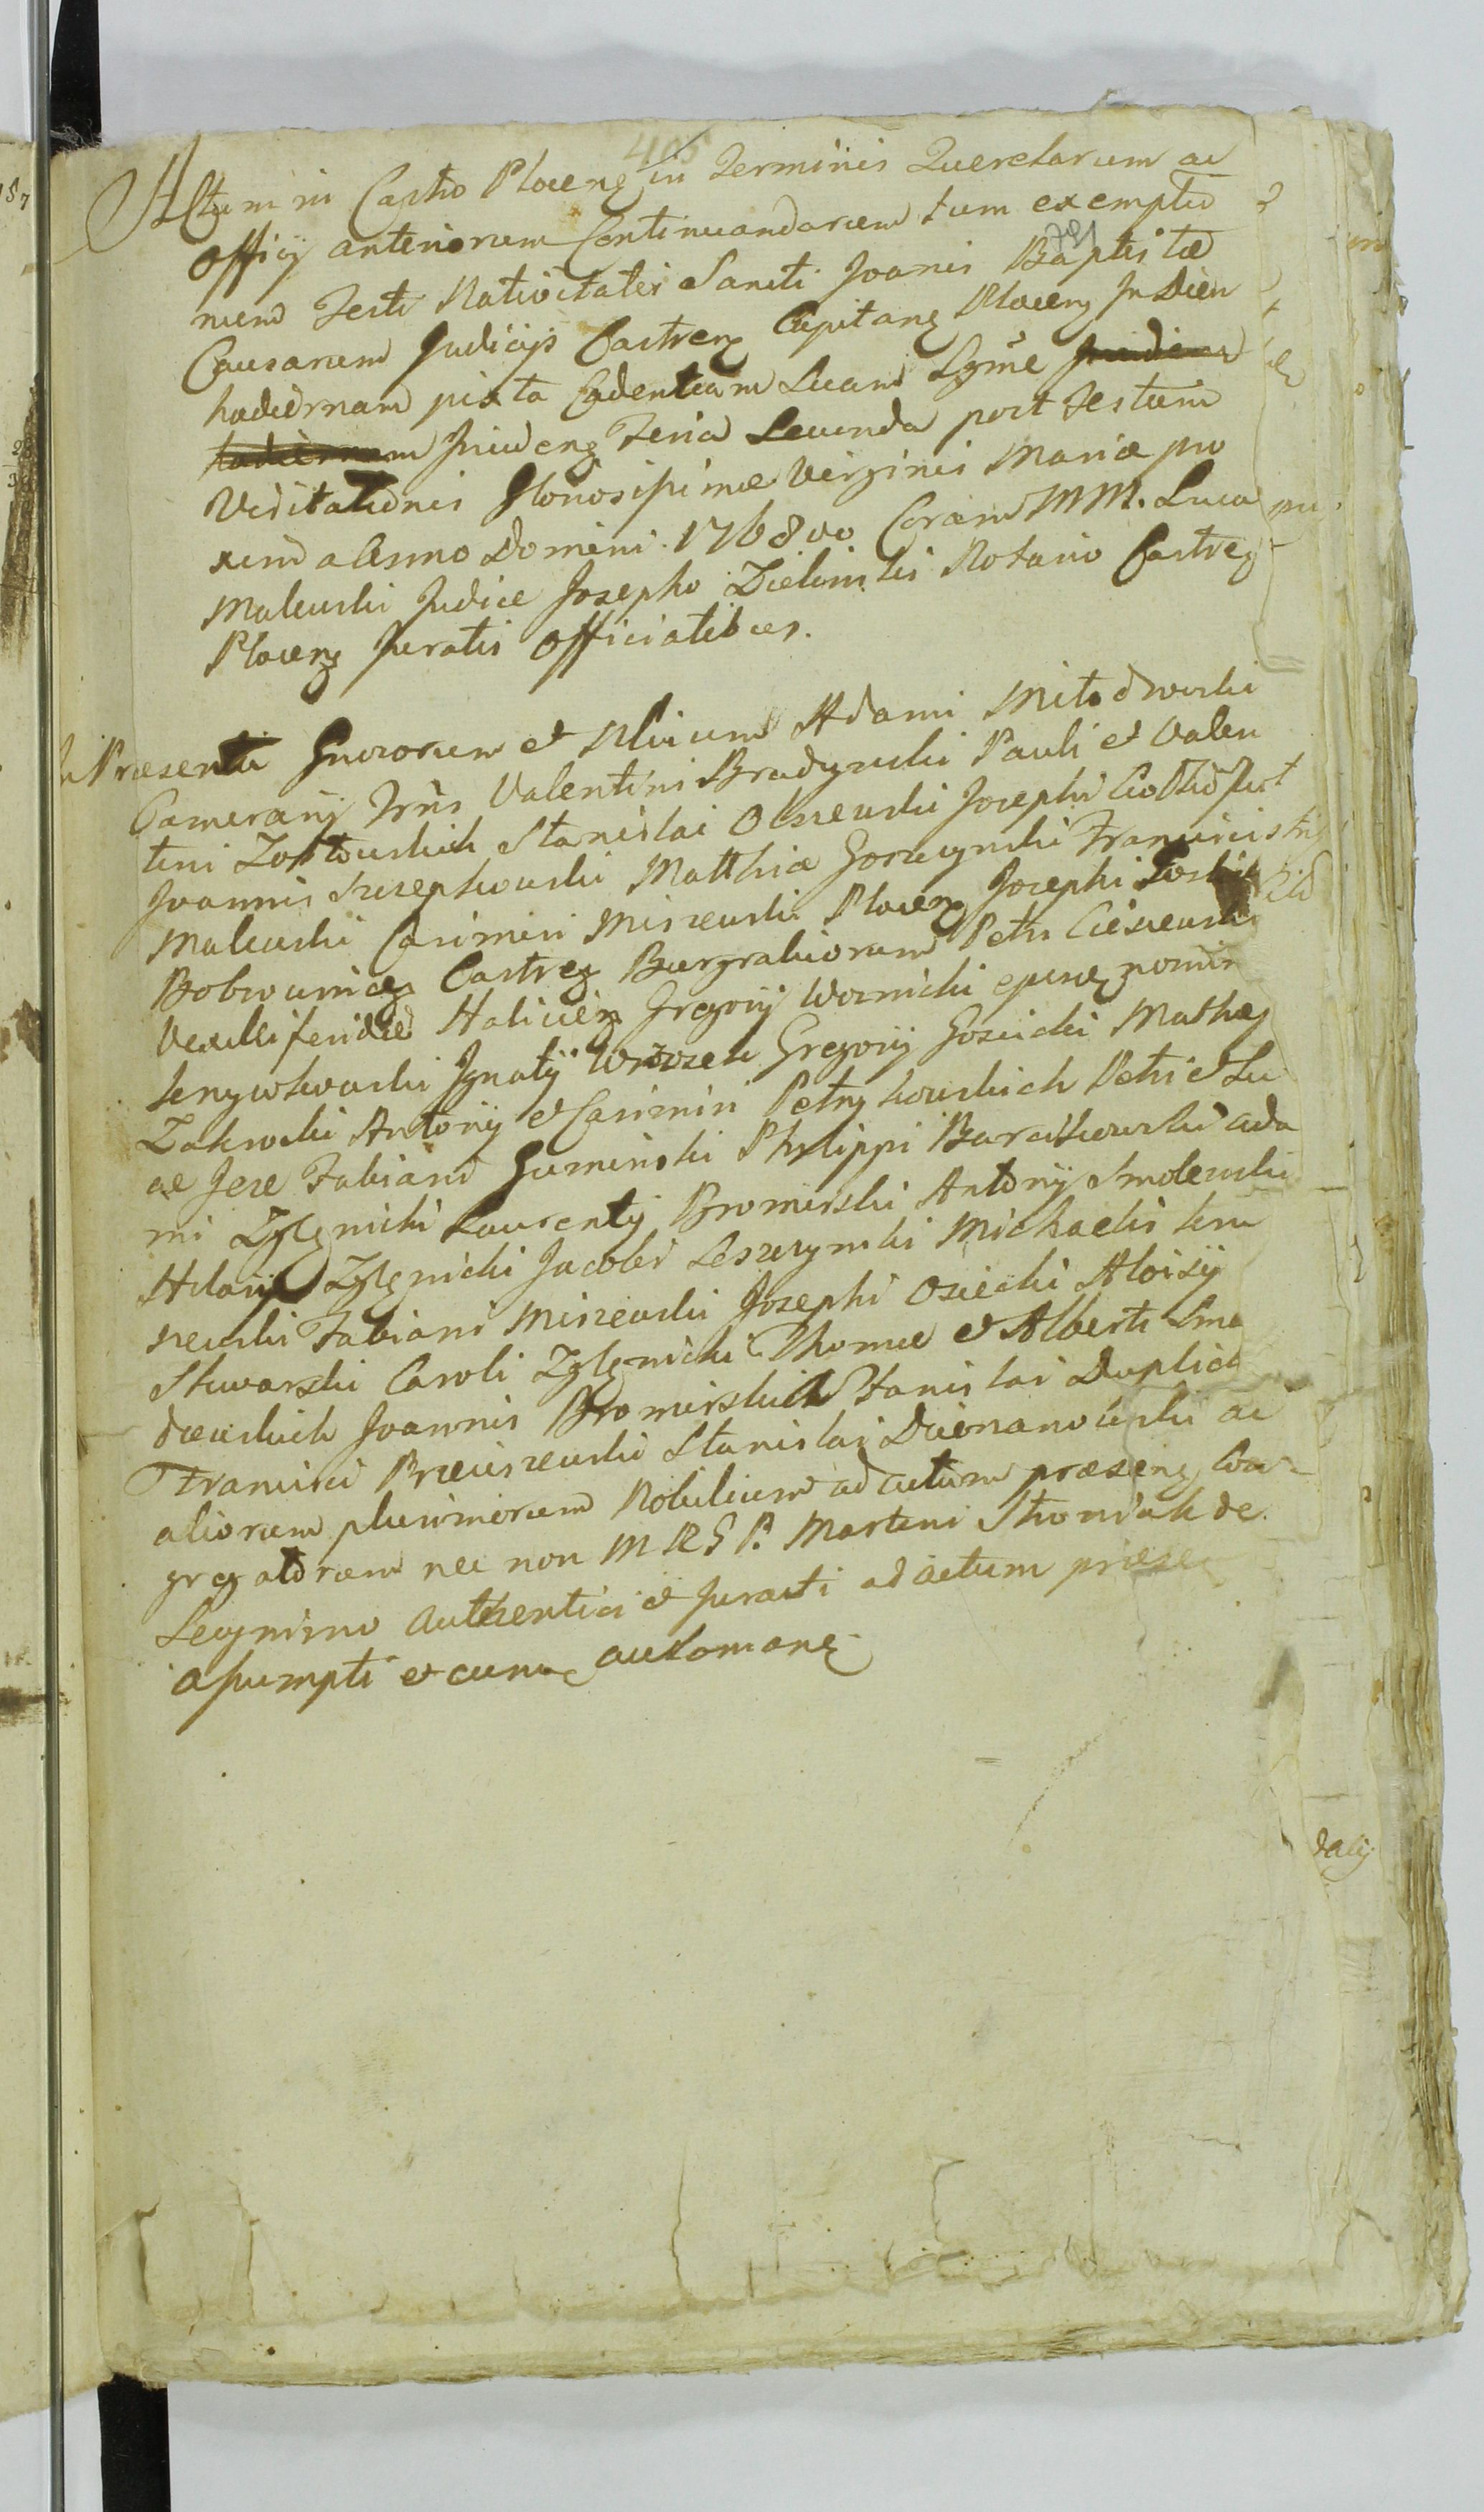 405
Actum in Castro Plocenȝ in Terminis Querelarum ac
Officij anteriorum Continuandarum tum ex emptio
num Festi Nativitatis Sancti Joanis Baptistæ
Causarum Judicijs Castrenȝ Capitanȝ Plocenȝ In Diem
hodiernam juxta Cadentiam Suam Lgme
Incidenȝ Feria Secunda post Festum
Visitationis Gloriosissimæ Virginis Mariæ pro
ximo Anno Domini 1768vo Coram MM. Luca
Malewski Judice Josepho Zielinski Notario Castrenȝ
Plocenȝ Juratis Officialibus.
In Præsentia Gnrorum et Nlium Adami Młodowski
Camerarij Trris Valentini Bradzynski Pauli et Valen
tini Zołtowskich Stanislai Olszewski Josephi
Joannis Szczepkowski Matthiæ Gorczynski Francisci
Malewski Casimiri Miszewski Plocenȝ Josephi
Bobrownicenȝ Castrenȝ Burgrabiorum Petri Ciesiewski
Vexilliferidæ Halicienȝ Gregorij Woznicki
Ignatij Wrzosek Gregorij Gosicki Mathej
Zakrocki Antonij et Casimiri Petrykowskich Petri et Lu
cæ Jeze Fabiani Guminski Philippi Barcikowski Ada
mi Zglenicki Laurentij Bromirski Antonij Smolenski
Hilarij Zglenicki Jacobi Leszczynski Michaelis
szewski Fabiani Miszewski Josephi Osiecki Aloisij
Skwarski Caroli Zglenicki Thomæ et Alberti
Joannis Bromirskich Stanislai Duplicki
Francisci Brzeziszewski Stanislai Dzierzanowski ac
aliorum plurimorum Nobilium ad actum præsenȝ Con
gregatorum nec non M R G P. Martini Stroniak de
Secymino Authentici et Jurati ad actum præsenȝ
Assumpti et